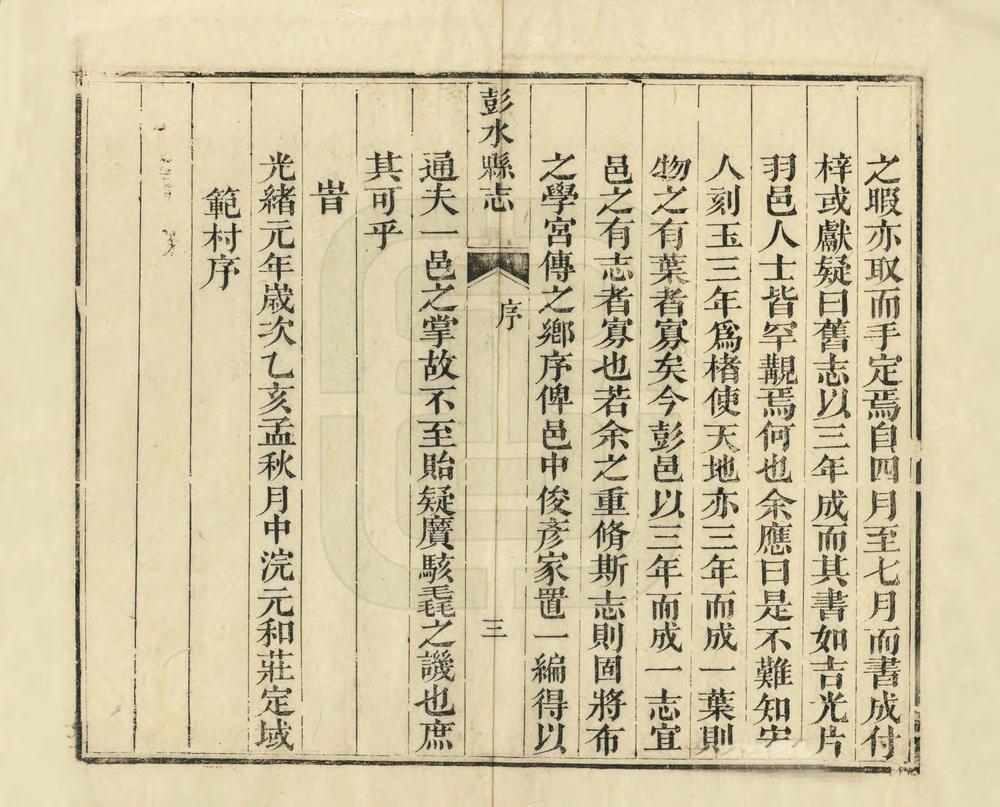 之暇亦取而手定焉自四月至七月而書成付
梓或獻疑曰舊志以三年成而其書如吉光片
羽邑人士皆罕覯焉何也余應曰是不難知宋
人刻玉三年爲楮使天地亦三年而成一葉則
物之有葉者寡矣今彭邑以三年而成一志宜
邑之有志者寡也若余之重脩斯志則固將布
之學宮傳之鄉序俾邑中俊彥家置一編得以
彭水縣志
序
三
通夫一邑之掌故不至貽疑廣駭毳之譏也庶
其可乎
旹
光緒元年歲次乙亥孟秋月中浣元和莊定域
範村序